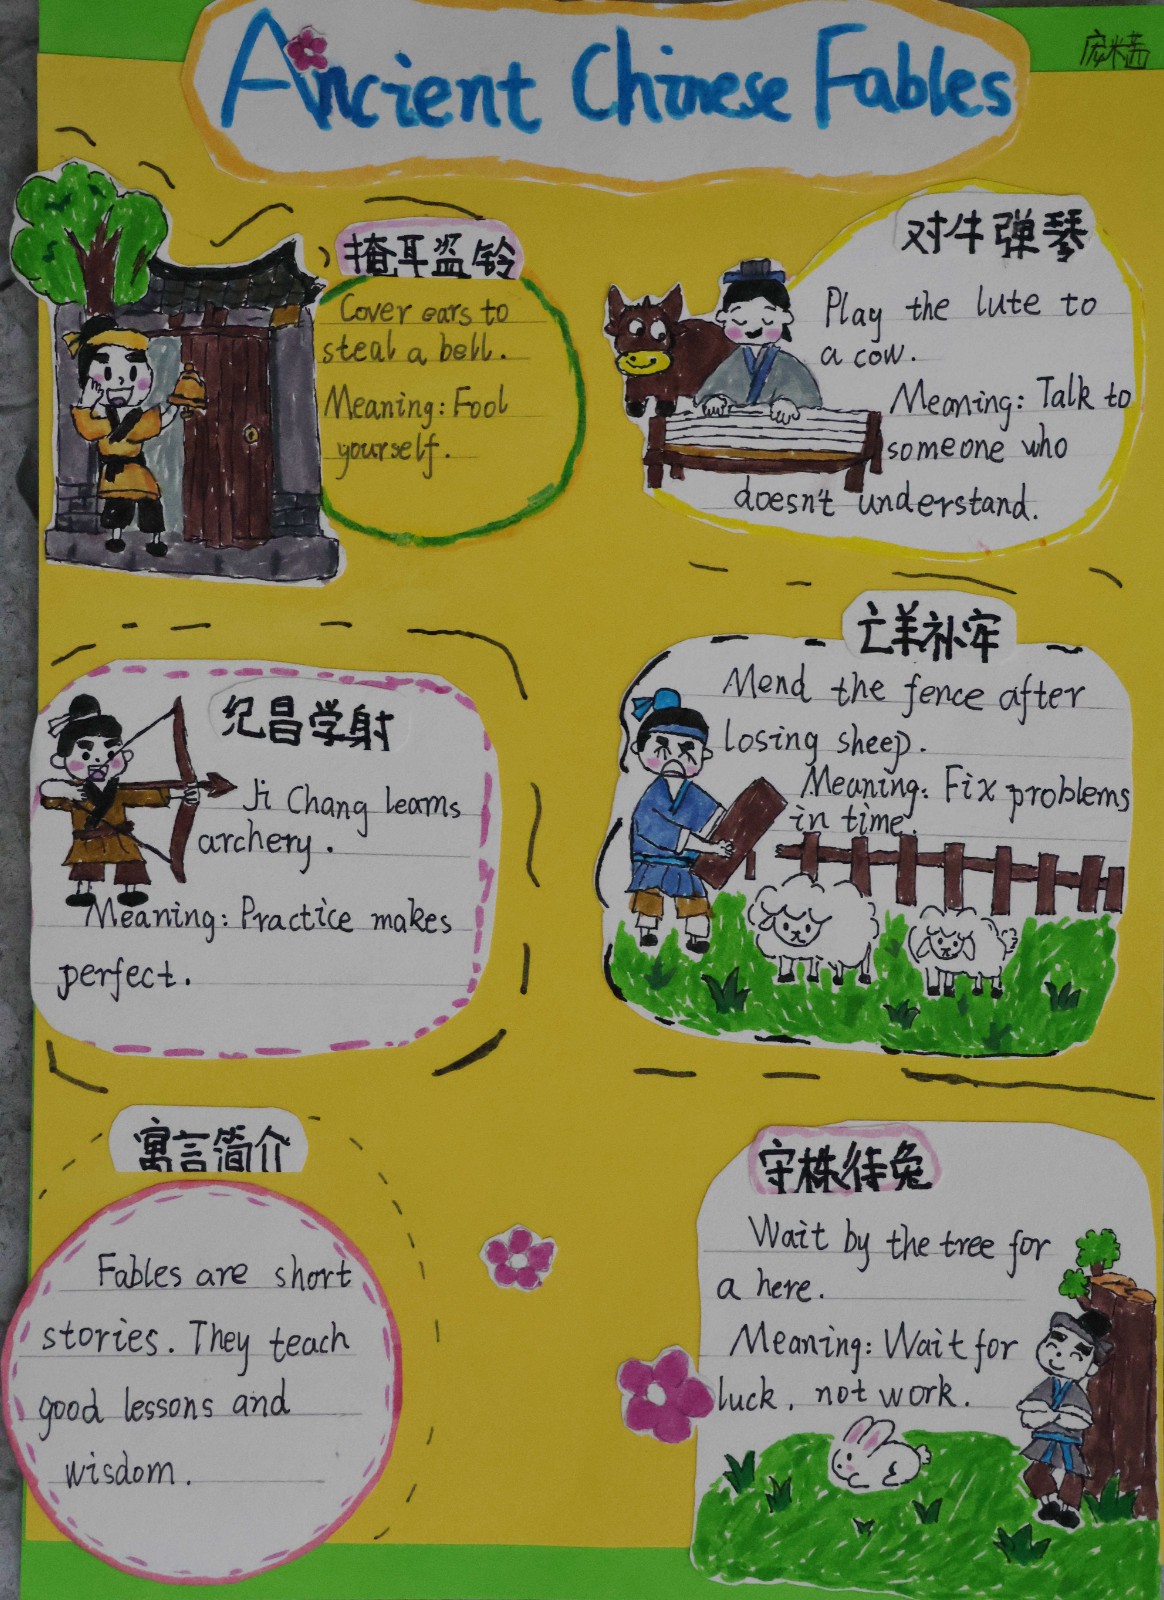 Ancient Chinese Fables
掩耳盗铃
Cover ears to
steal a bell.
Meaning: Fool
yourself.
对牛弹琴
Play the lute to
a cow.
Meaning: Talk to
someone who
doesn't understand.
纪昌学射
Ji Chang learns
archery.
Meaning: Practice makes
perfect.
亡羊补牢
Mend the fence after
losing sheep.
Meaning: Fix problems
in time.
寓言简介
Fables are short
stories. They teach
good lessons and
wisdom.
守株待兔
Wait by the tree for
a here.
Meaning: Wait for
luck, not work.